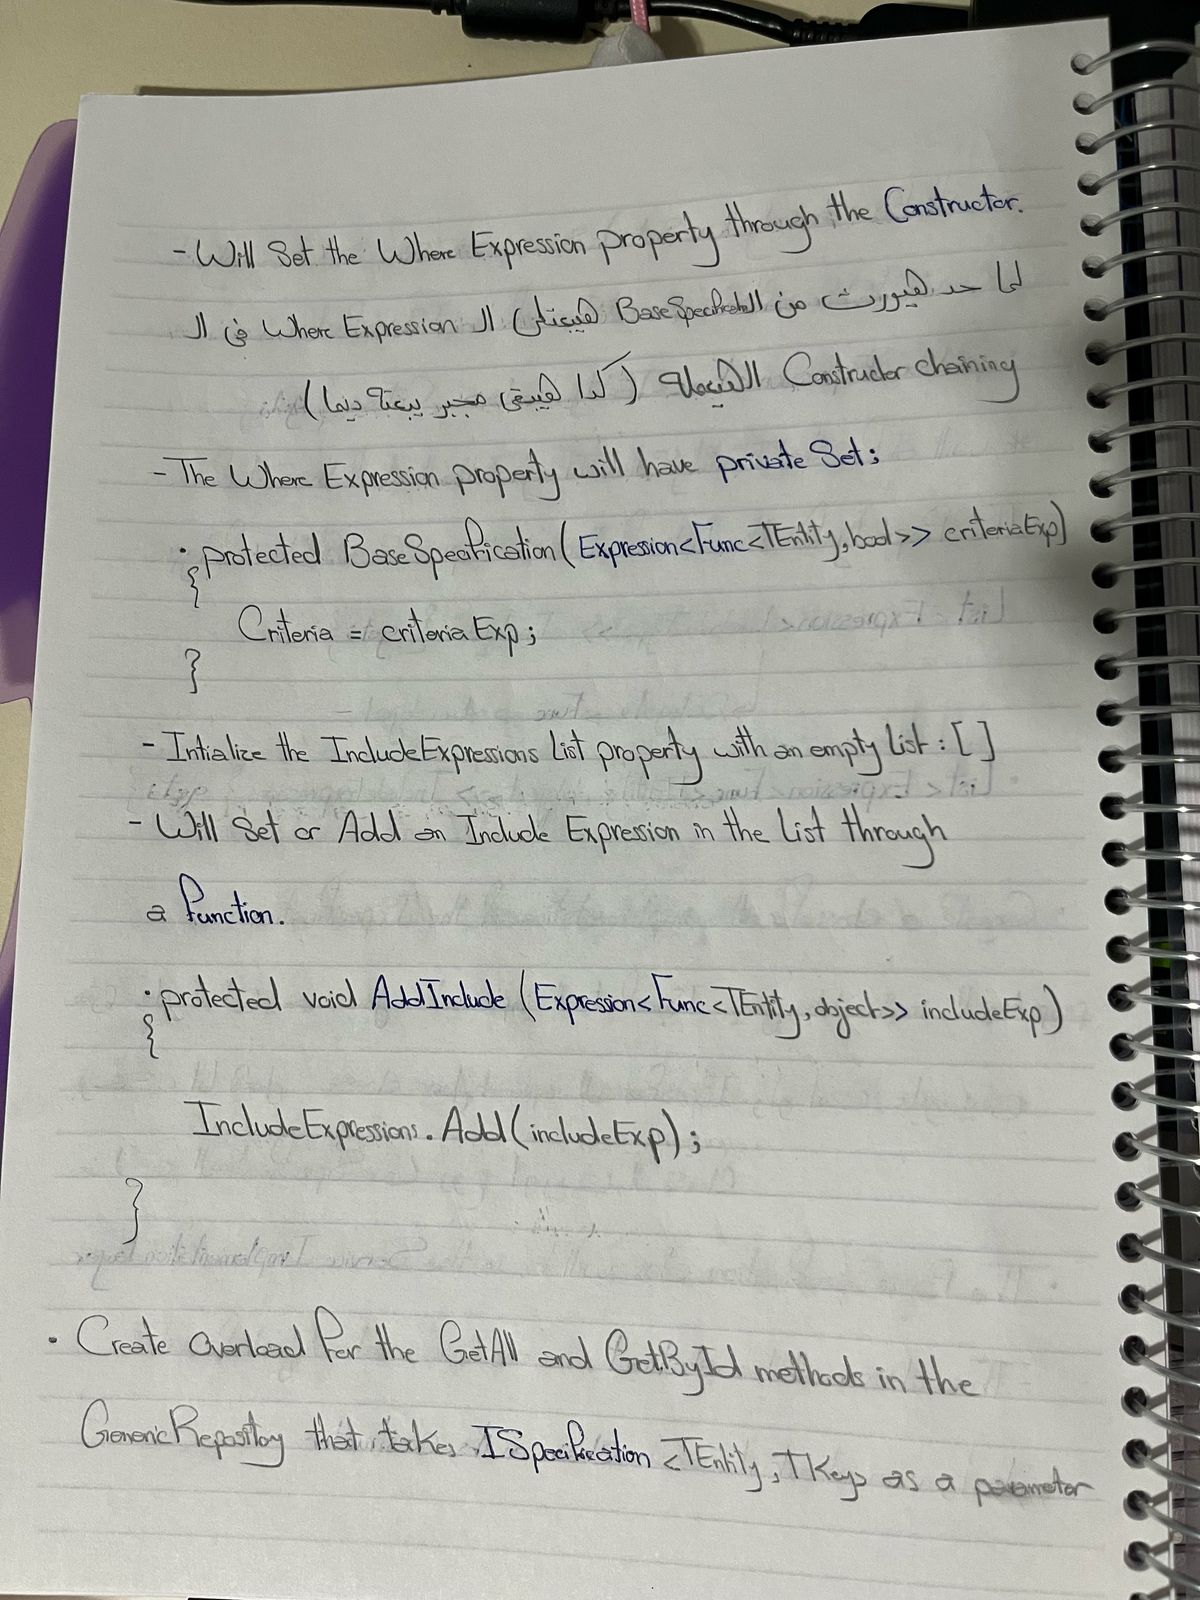 - Will Set the Where Expression property through the Constructor.
لما حد هيورث من ال BaseSpecification هيبعتلى ال Where Expression فى ال
Constructor chaining الهيعمله (كدا هيبقى مجبر يبعته ديما)
- The Where Expression property will have private Set;
• protected BaseSpecification(Expression<Func<TEntity, bool>> criteriaExp)
{
Criteria = criteriaExp;
}
- Intialize the IncludeExpressions List property with an empty List : [ ]
- Will Set or Add an Include Expression in the List through
a function.
• protected void AddInclude (Expression<Func<TEntity, object>> includeExp)
{
IncludeExpressions.Add(includeExp);
}
• Create Overload For the GetAll and GetById methods in the
GenericRepository that takes ISpecification <TEntity, TKey> as a parameter